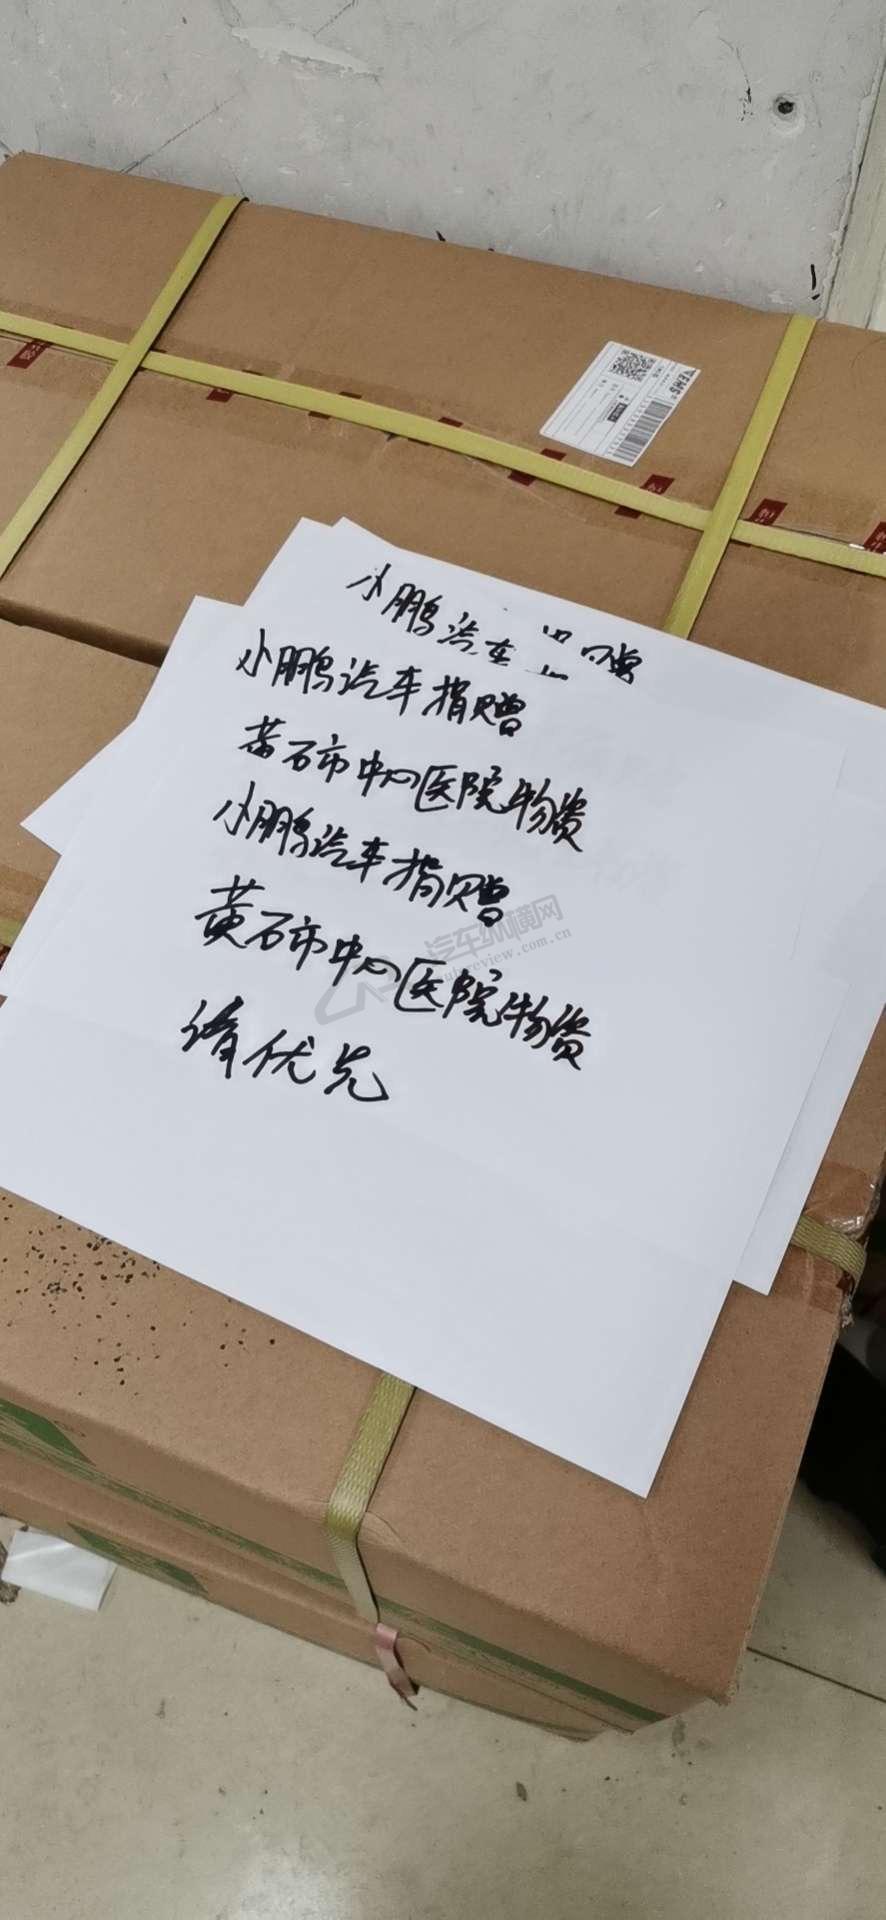 小鹏汽车
小鹏汽车捐赠
黄石市中心医院物资
小鹏汽车捐赠
黄石市中心医院物资
请优先
汽车纵横网